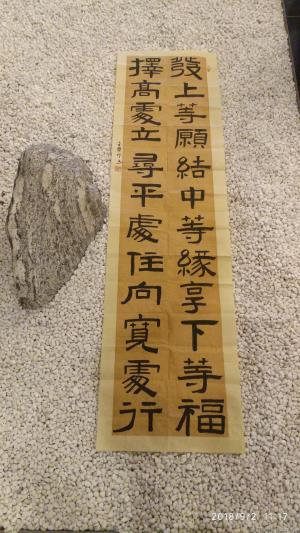 發上等願結中等緣享下等福
擇高處立尋平處住向寬處行
2018/9/2 11:17